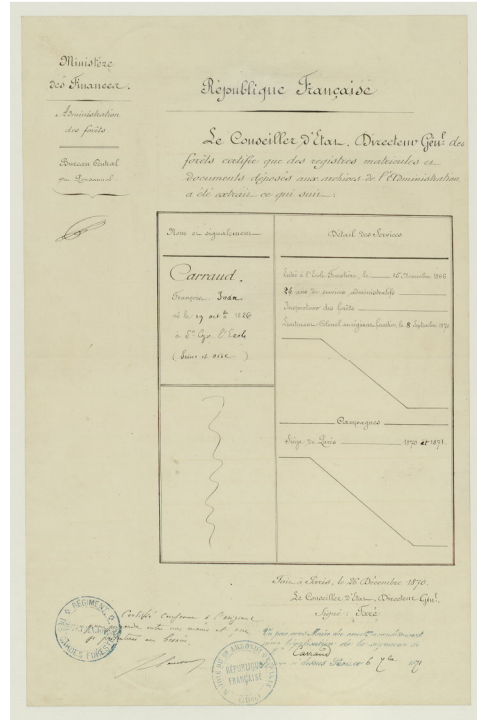 Ministère
des Finances.
Administration
des forêts
Bureau Central
du Personnel
République Française
Le Conseiller d'Etat, Directeur Génl. des
forêts certifie que des registres matricules et
documents déposés aux archives de l'Administration
a été extrait ce qui suit:
Nom et signalement
Carraud,
François Jean
né le 29 octbre 1826
à St. Cyr l'Ecole
(Seine et oise)
Détail des Services
Entré à l'Ecole Forestière, le 15 Novembre 1846
24 ans de services administratifs
Inspecteur des forêts
Lieutenant Colonel au régiment forestier, le 8 Septembre 1870
Campagnes
Siège de Paris 1870 et 1871.
Fait à Paris, le 26 Décembre 1870.
Le Conseiller d'Etat, Directeur Génl.
Signé: Faré
Certifié conforme à l'original
entre mes mains et que
au besoin
RÉGIMENT
FOREST
Vu par nous Maire du
pour légalisation de la signature
Carraud
6 7bre 1871
RÉPUBLIQUE
FRANÇAISE